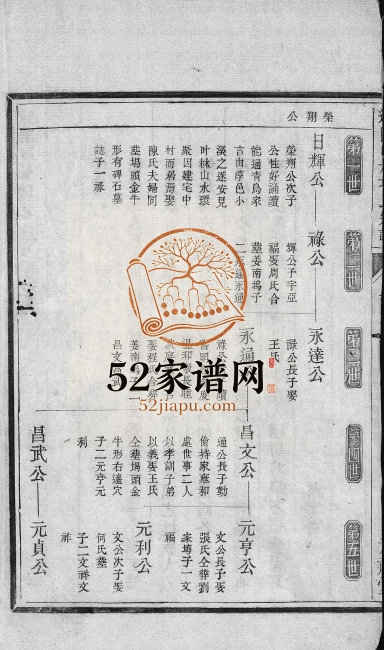 榮朔公
第一世
第二世
第三世
第四世
第五世
日輝公
榮朔公次子
公性好誦讀
能通青烏家
言由淳邑小
溪之迷安見
叶林山水環
聚因建宅中
村而居焉娶
陳氏夫婦同
塟塲頭金牛
形有碑石墓
誌子一祿
祿公
輝公子字亞
福娶周氏合
塟姜南塢子
二永達永通
永達公
祿公長子娶
王氏
永通
昌文公
通公長子勤
儉持家雍和
處世事二人
以孝訓子弟
以義娶王氏
仝塟塲頭金
牛形右邊穴
子二元亨元
利
元亨公
文公長子娶
張氏仝葬劉
家塝子一文
福
元利公
文公次子娶
何氏塟
子二文祥文
祚
昌武公
元貞公
52家谱网
52jiapu.com